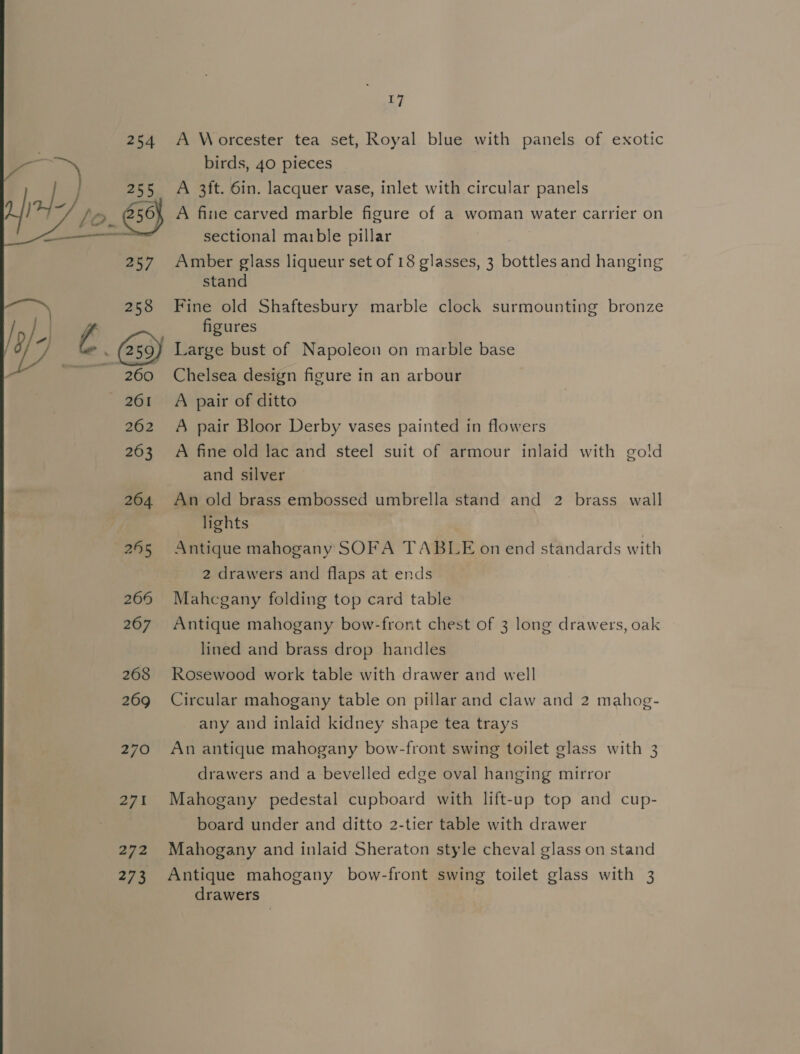 17
254 A Worcester tea set, Royal blue with panels of exotic
birds, 40 pieces
255 A 3ft. 6in. lacquer vase, inlet with circular panels
256 A fine carved marble figure of a woman water carrier on
sectional marble pillar
257 Amber glass liqueur set of 18 glasses, 3 bottles and hanging
stand
258 Fine old Shaftesbury marble clock surmounting bronze
figures
259 Large bust of Napoleon on marble base
260 Chelsea design figure in an arbour
261 A pair of ditto
262 A pair Bloor Derby vases painted in flowers
263 A fine old lac and steel suit of armour inlaid with gold
and silver
264 An old brass embossed umbrella stand and 2 brass wall
lights
265 Antique mahogany SOFA TABLE on end standards with
2 drawers and flaps at ends
266 Mahcgany folding top card table
267 Antique mahogany bow-front chest of 3 long drawers, oak
lined and brass drop handles
268 Rosewood work table with drawer and well
269 Circular mahogany table on pillar and claw and 2 mahog-
any and inlaid kidney shape tea trays
270 An antique mahogany bow-front swing toilet glass with 3
drawers and a bevelled edge oval hanging mirror
271 Mahogany pedestal cupboard with lift-up top and cup-
board under and ditto 2-tier table with drawer
272 Mahogany and inlaid Sheraton style cheval glass on stand
273 Antique mahogany bow-front swing toilet glass with 3
drawers